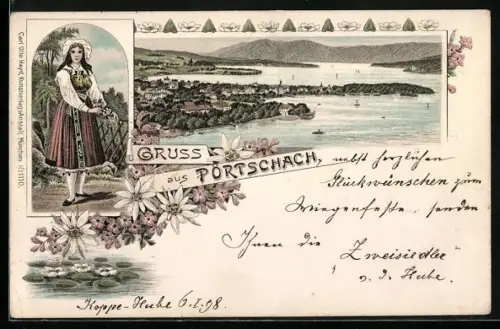 Carl Otto Hayd, Kunstverlags-Anstalt, München
GRUSS
aus PÖRTSCHACH,
nebst herzlichen
Glückwünschen zum
Wiegenfeste, senden
Ihnen die "Zweisiedler"
v. d. Hube.
Koppe-Hube 6.I.98.